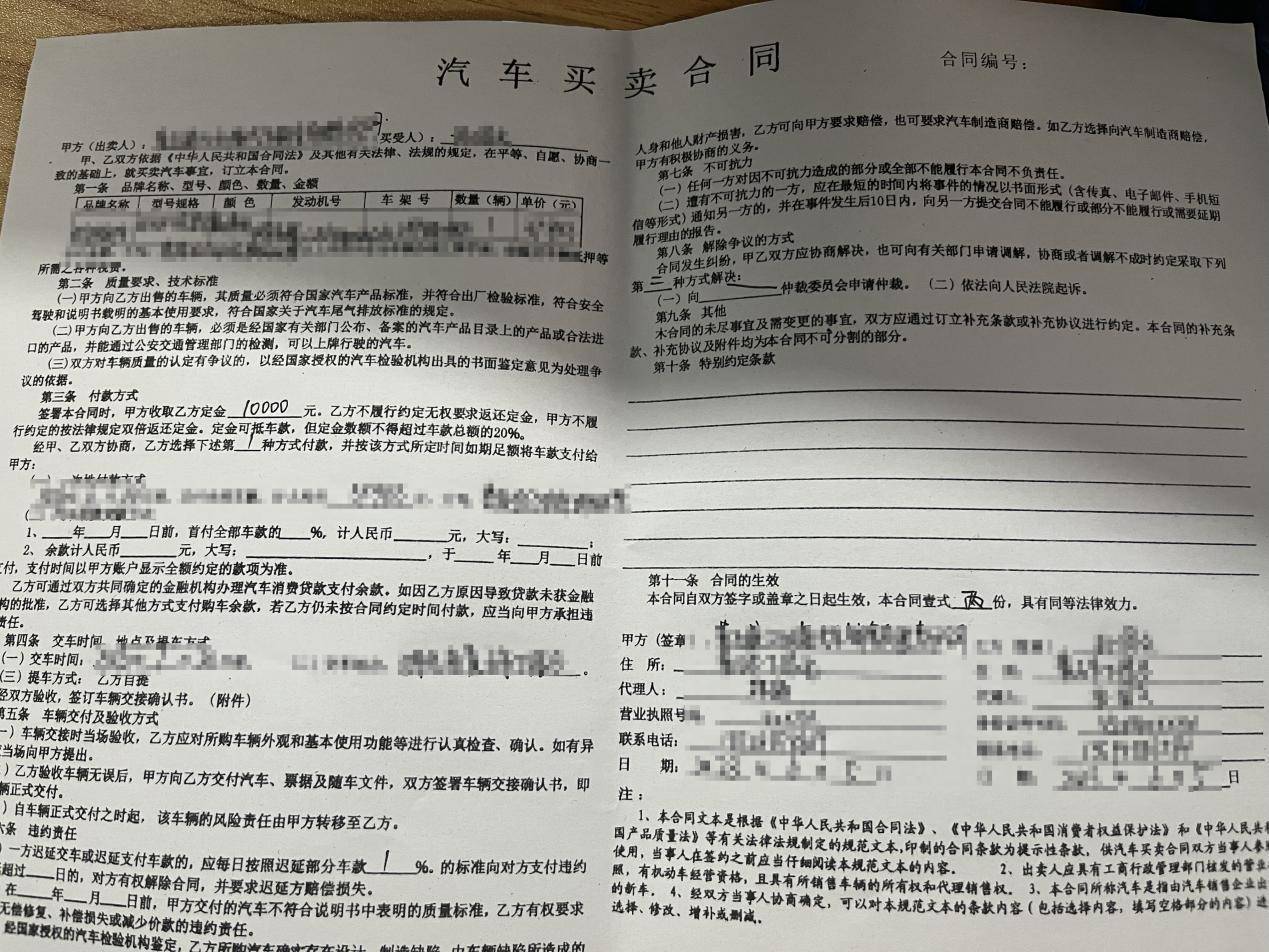 汽车买卖合同
合同编号：
甲方（出卖人）：
买受人）：
甲、乙双方依据《中华人民共和国合同法》及其他有关法律、法规的规定，在平等、自愿、协商一
致的基础上，就买卖汽车事宜，订立本合同。
第一条 品牌名称、型号、颜色、数量、金额
品牌名称 型号规格 颜 色 发动机号 车 架 号 数量（辆） 单价（元）
抵押等
所需之各种税费。
第二条 质量要求、技术标准
（一）甲方向乙方出售的车辆，其质量必须符合国家汽车产品标准，并符合出厂检验标准，符合安全
驾驶和说明书载明的基本使用要求，符合国家关于汽车尾气排放标准的规定。
（二）甲方向乙方出售的车辆，必须是经国家有关部门公布、备案的汽车产品目录上的产品或合法进
口的产品，并能通过公安交通管理部门的检测，可以上牌行驶的汽车。
（三）双方对车辆质量的认定有争议的，以经国家授权的汽车检验机构出具的书面鉴定意见为处理争
议的依据。
第三条 付款方式
签署本合同时，甲方收取乙方定金 10000 元。乙方不履行约定无权要求返还定金，甲方不履
行约定的按法律规定双倍返还定金。定金可抵车款，但定金数额不得超过车款总额的20%。
经甲、乙双方协商，乙方选择下述第 1 种方式付款，并按该方式所定时间如期足额将车款支付给
甲方：
1、 年 月 日前，首付全部车款的 %，计人民币 元，大写： ；
2、余款计人民币 元，大写： ，于 年 月 日前
付，支付时间以甲方账户显示全额约定的款项为准。
乙方可通过双方共同确定的金融机构办理汽车消费贷款支付余款。如因乙方原因导致贷款未获金融
构的批准，乙方可选择其他方式支付购车余款，若乙方仍未按合同约定时间付款，应当向甲方承担违
责任。
第四条 交车时间、地点及提车方式
（一）交车时间：
（三）提车方式： 乙方自提
经双方验收，签订车辆交接确认书。（附件）
第五条 车辆交付及验收方式
一）车辆交接时当场验收，乙方应对所购车辆外观和基本使用功能等进行认真检查、确认。如有异
当场向甲方提出。
）乙方验收车辆无误后，甲方向乙方交付汽车、票据及随车文件，双方签署车辆交接确认书，即
辆正式交付。
）自车辆正式交付之时起，该车辆的风险责任由甲方转移至乙方。
六条 违约责任
）一方迟延交车或迟延支付车款的，应每日按照迟延部分车款 1 %。的标准向对方支付违约
超过 日的，对方有权解除合同，并要求迟延方赔偿损失。
在 年 月 日前，甲方交付的汽车不符合说明书中表明的质量标准，乙方有权要求
无偿修复、补偿损失或减少价款的违约责任。
经国家授权的汽车检验机构鉴定，乙方所购汽车确实存在设计、制造缺陷，由车辆缺陷所造成的
人身和他人财产损害，乙方可向甲方要求赔偿，也可要求汽车制造商赔偿。如乙方选择向汽车制造商赔偿，
甲方有积极协商的义务。
第七条 不可抗力
（一）任何一方对因不可抗力造成的部分或全部不能履行本合同不负责任。
（二）遭有不可抗力的一方，应在最短的时间内将事件的情况以书面形式（含传真、电子邮件、手机短
信等形式）通知另一方的，并在事件发生后10日内，向另一方提交合同不能履行或部分不能履行或需要延期
履行理由的报告。
第八条 解除争议的方式
合同发生纠纷，甲乙双方应协商解决，也可向有关部门申请调解，协商或者调解不成时约定采取下列
第 二 种方式解决：
（一）向 仲裁委员会申请仲裁。（二）依法向人民法院起诉。
第九条 其他
本合同的未尽事宜及需变更的事宜，双方应通过订立补充条款或补充协议进行约定。本合同的补充条
款、补充协议及附件均为本合同不可分割的部分。
第十条 特别约定条款
第十一条 合同的生效
本合同自双方签字或盖章之日起生效，本合同壹式 两 份，具有同等法律效力。
甲方（签章
住 所：
代理人：
营业执照号
联系电话：
日 期：
日
注：
1、本合同文本是根据《中华人民共和国合同法》、《中华人民共和国消费者权益保护法》和《中华人民共和
国产品质量法》等有关法律法规制定的规范文本，印制的合同条款为提示性条款，供汽车买卖合同双方当事人参照
使用，当事人在签约之前应当仔细阅读本规范文本的内容。 2、出卖人应具有工商行政管理部门核发的营业
照，有机动车经营资格，且具有所销售车辆的所有权和代理销售权。 3、本合同所称汽车是指由汽车销售企业出
的新车。 4、经双方当事人协商确定，可以对本规范文本的条款内容（包括选择内容，填写空格部分的内容）进
选择、修改、增补或删减。